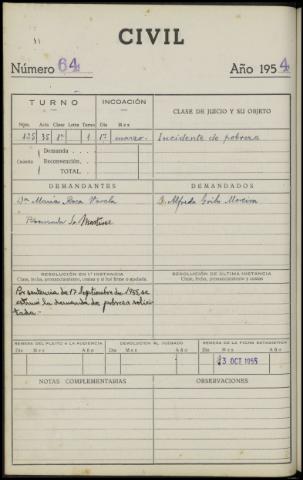 11
CIVIL
Número 64
Año 1954
TURNO
INCOACIÓN
CLASE DE JUICIO Y SU OBJETO
Núm. Acto Clase Letra Tarea Día Mes
125 35 1ª 1 1º marzo.
Incidente de pobreza
Cuantía Demanda
Reconvención.
TOTAL
DEMANDANTES
DEMANDADOS
Dª María Rosa Varela
D. Alfredo Moreira
Martínez
RESOLUCIÓN EN 1ª INSTANCIA
Clase, fecha, pronunciamiento, costas y si fué firme o apelada.
RESOLUCIÓN DE ÚLTIMA INSTANCIA
Clase, fecha, pronunciamiento y costas
Por sentencia de 17 Septiembre de 1955, se
estimó la demanda de pobreza solici
tada.
REMESA DEL PLEITO A LA AUDIENCIA
DEVOLUCIÓN AL JUZGADO
REMESA DE LA FICHA ESTADÍSTICA
Día Mes Año
Día Mes Año
Día Mes Año
3 OCT 1955
NOTAS COMPLEMENTARIAS
OBSERVACIONES